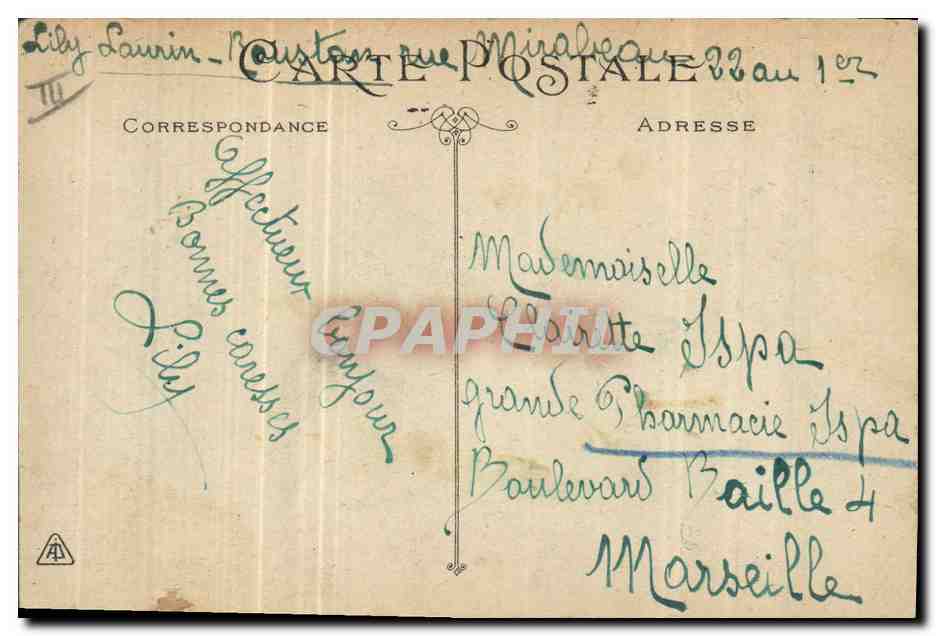 Lily Laurin - Roustan rue Mirabeau 22 au 1er
CARTE POSTALE
III
CORRESPONDANCE
ADRESSE
Affectueux bonjour
Bonnes caresses
Lily
CPAPHIL
Mademoiselle
Clairette Ispa
grande Pharmacie Ispa
Boulevard Baille 4
Marseille